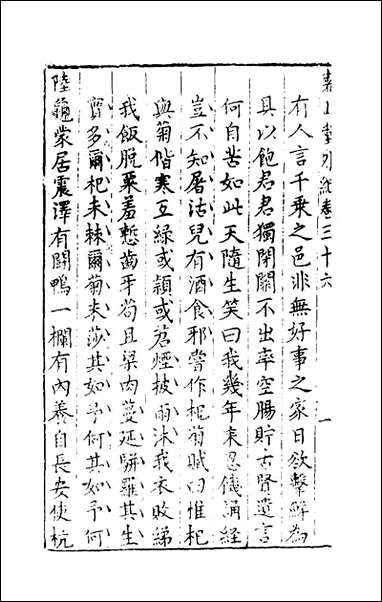 堯山堂外紀卷三十六
一
有人言千乗之邑非無好事之家日欲擊鮮為
具以飽君君獨閉關不出率空腸貯古賢遺言
何自苦如此天隨生笑曰我幾年来忍饑誦經
豈不知屠沽兒有酒食邪甞作杞菊賦曰惟杞
與菊偕寒互綠或頴或苕煙披雨沐我衣敗綈
我飯脫粟羞慙齒牙苟且梁肉蔓延駢羅其生
實多爾杞未棘爾菊未莎其如予何其如予何
陸龜蒙居震澤有鬬鴨一欄有內養自長安使杭